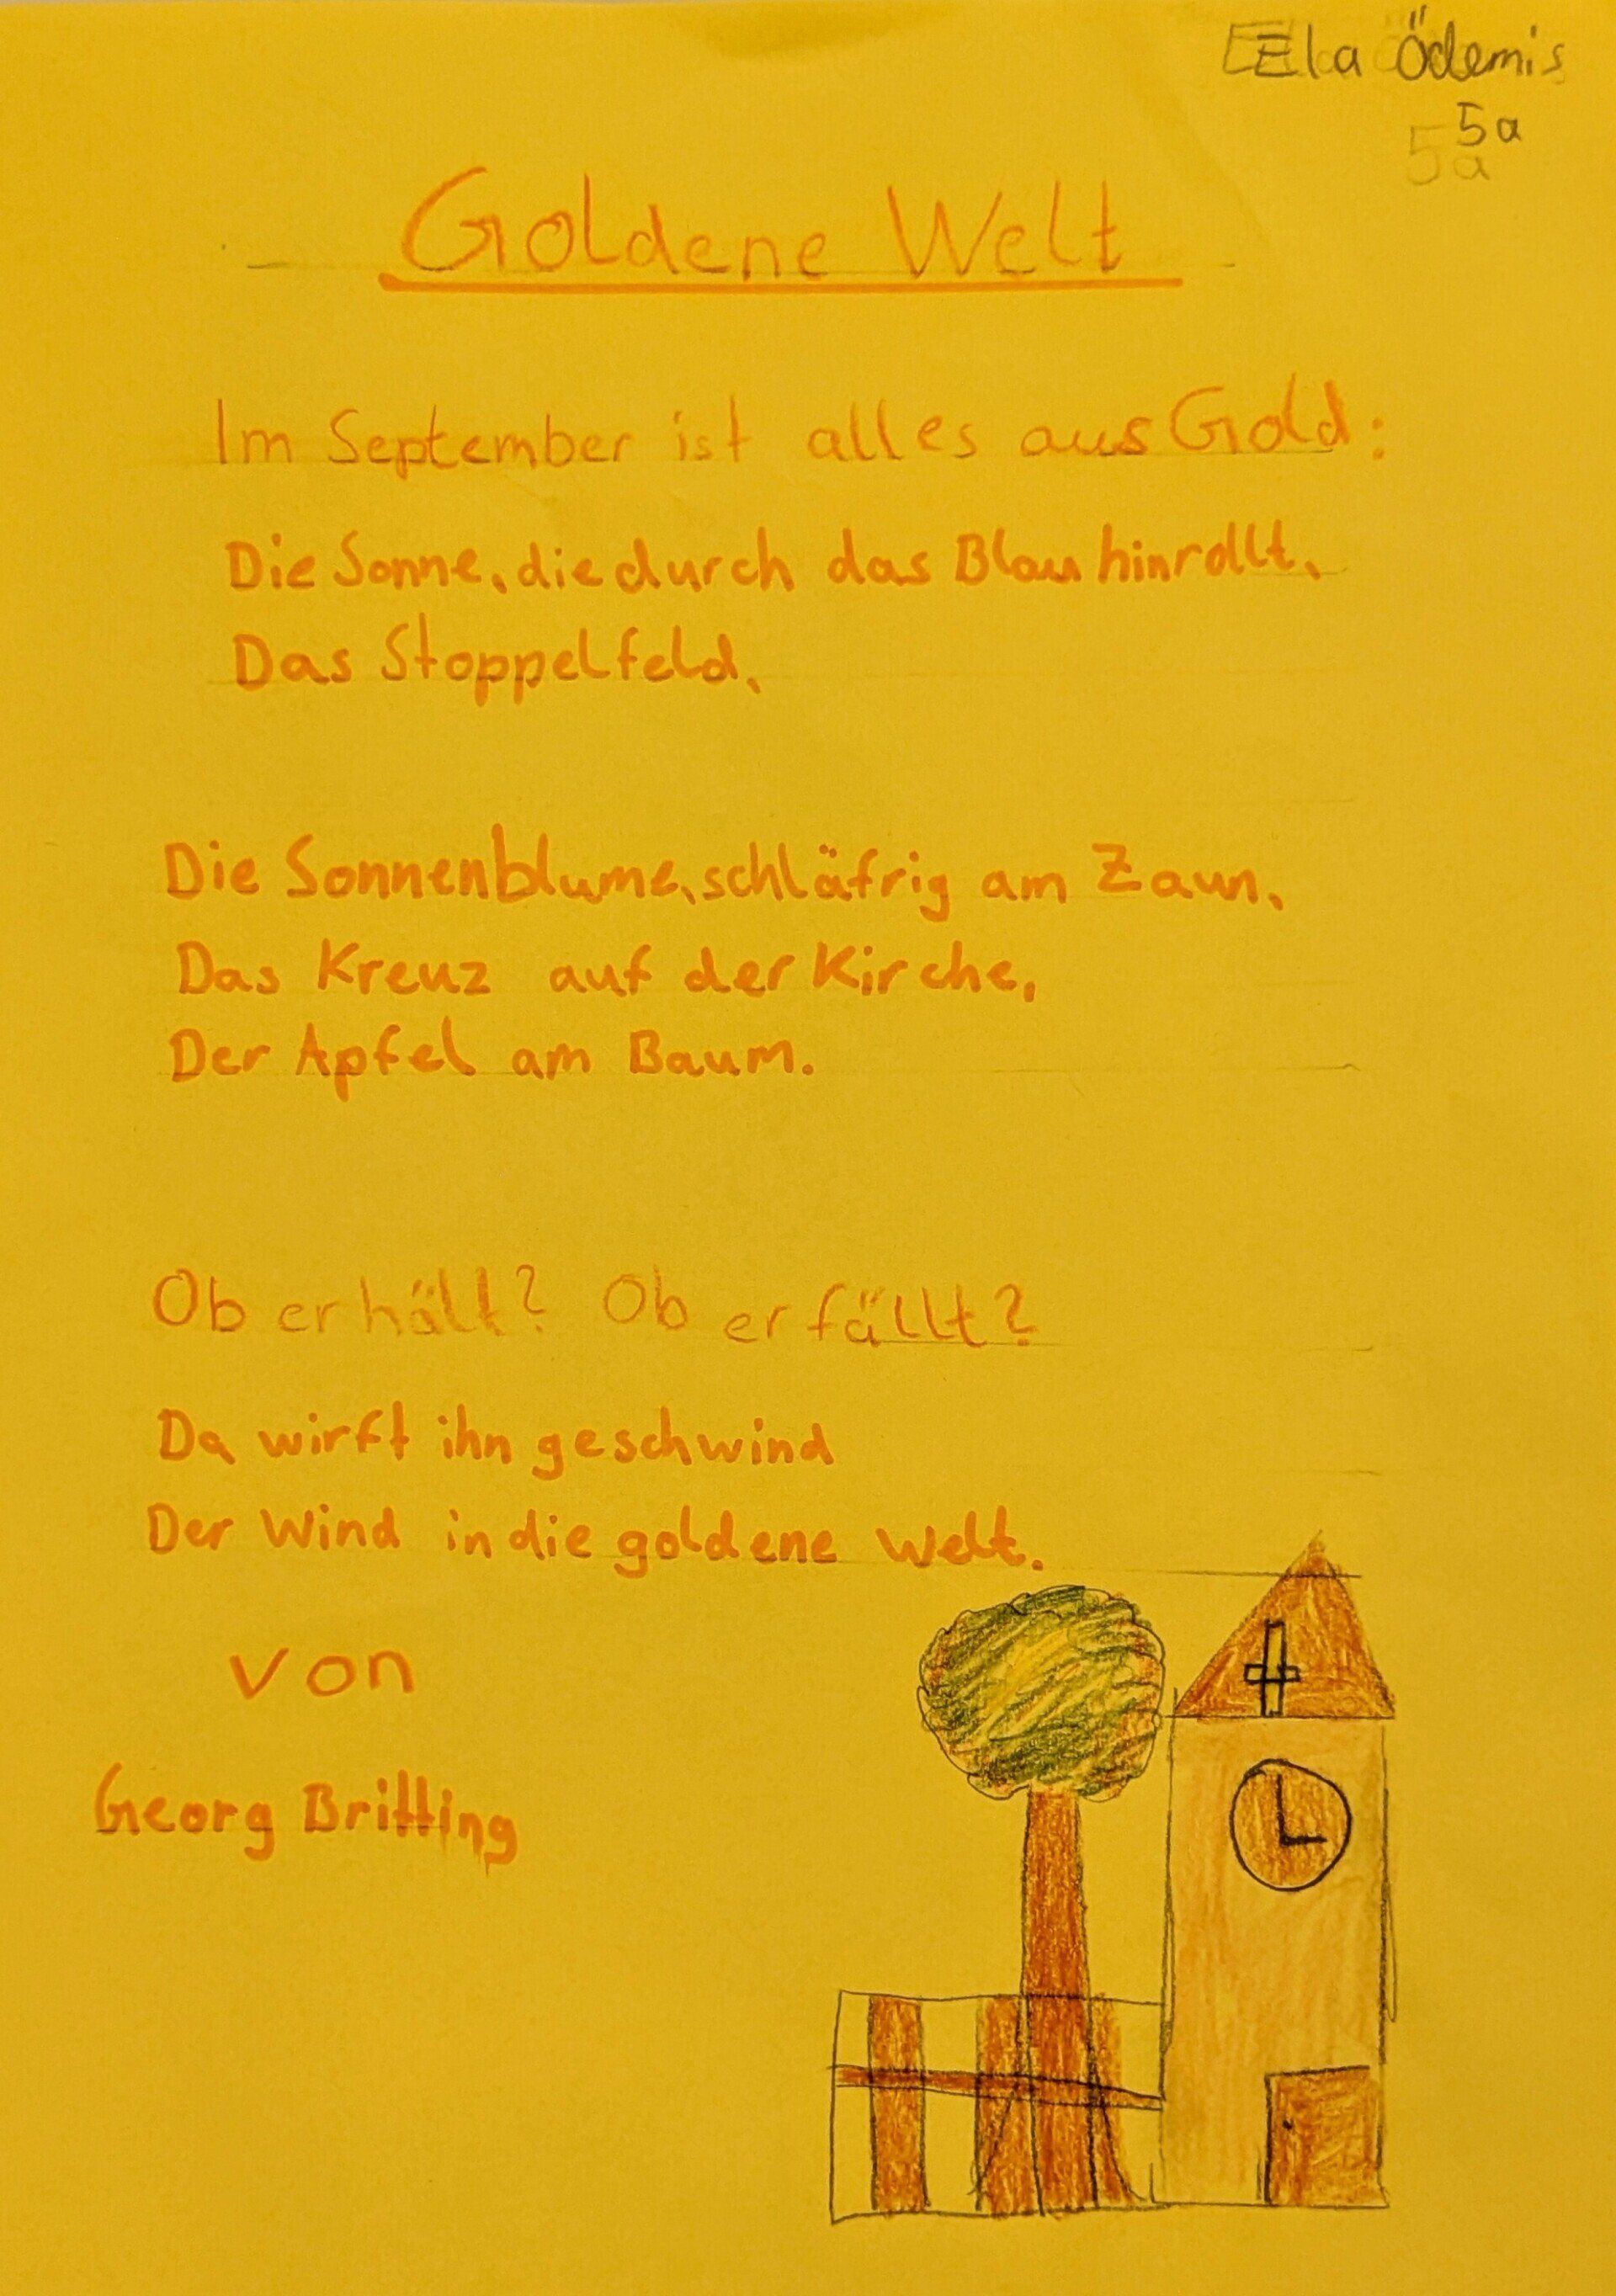 Ela Ödemis
5a
Goldene Welt
Im September ist alles aus Gold:
Die Sonne, die durch das Blau hinrollt,
Das Stoppelfeld,
Die Sonnenblume, schläfrig am Zaun,
Das Kreuz auf der Kirche,
Der Apfel am Baum.
Ob er hält? Ob er fällt?
Da wirft ihn geschwind
Der Wind in die goldene Welt.
von
Georg Britting